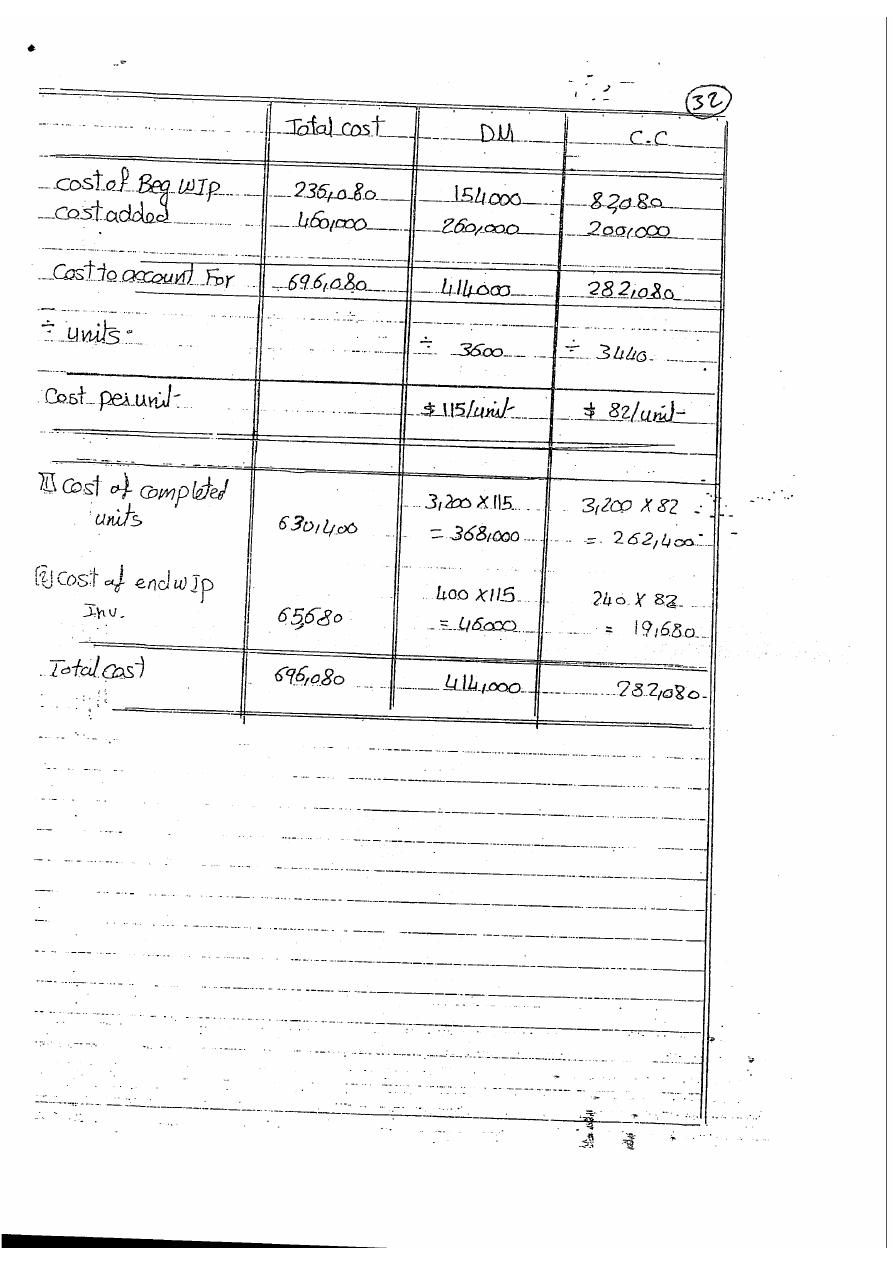 32
Total cost DM C.C
cost of Beg WIP 236,080 154000 82,080
cost added 460,000 260,000 200,000
Cost to account For 696,080 414000 282,080
÷ units ÷ 3600 ÷ 3440
Cost per unit $ 115/unit $ 82/unit
[1] Cost of completed 3,200 X 115 3,200 X 82
units 630,400 = 368,000 = 262,400
[2] Cost of end WIP 400 X 115 240 X 82
Inv. 65,680 = 46000 = 19,680
Total Cost 696,080 414,000 282,080